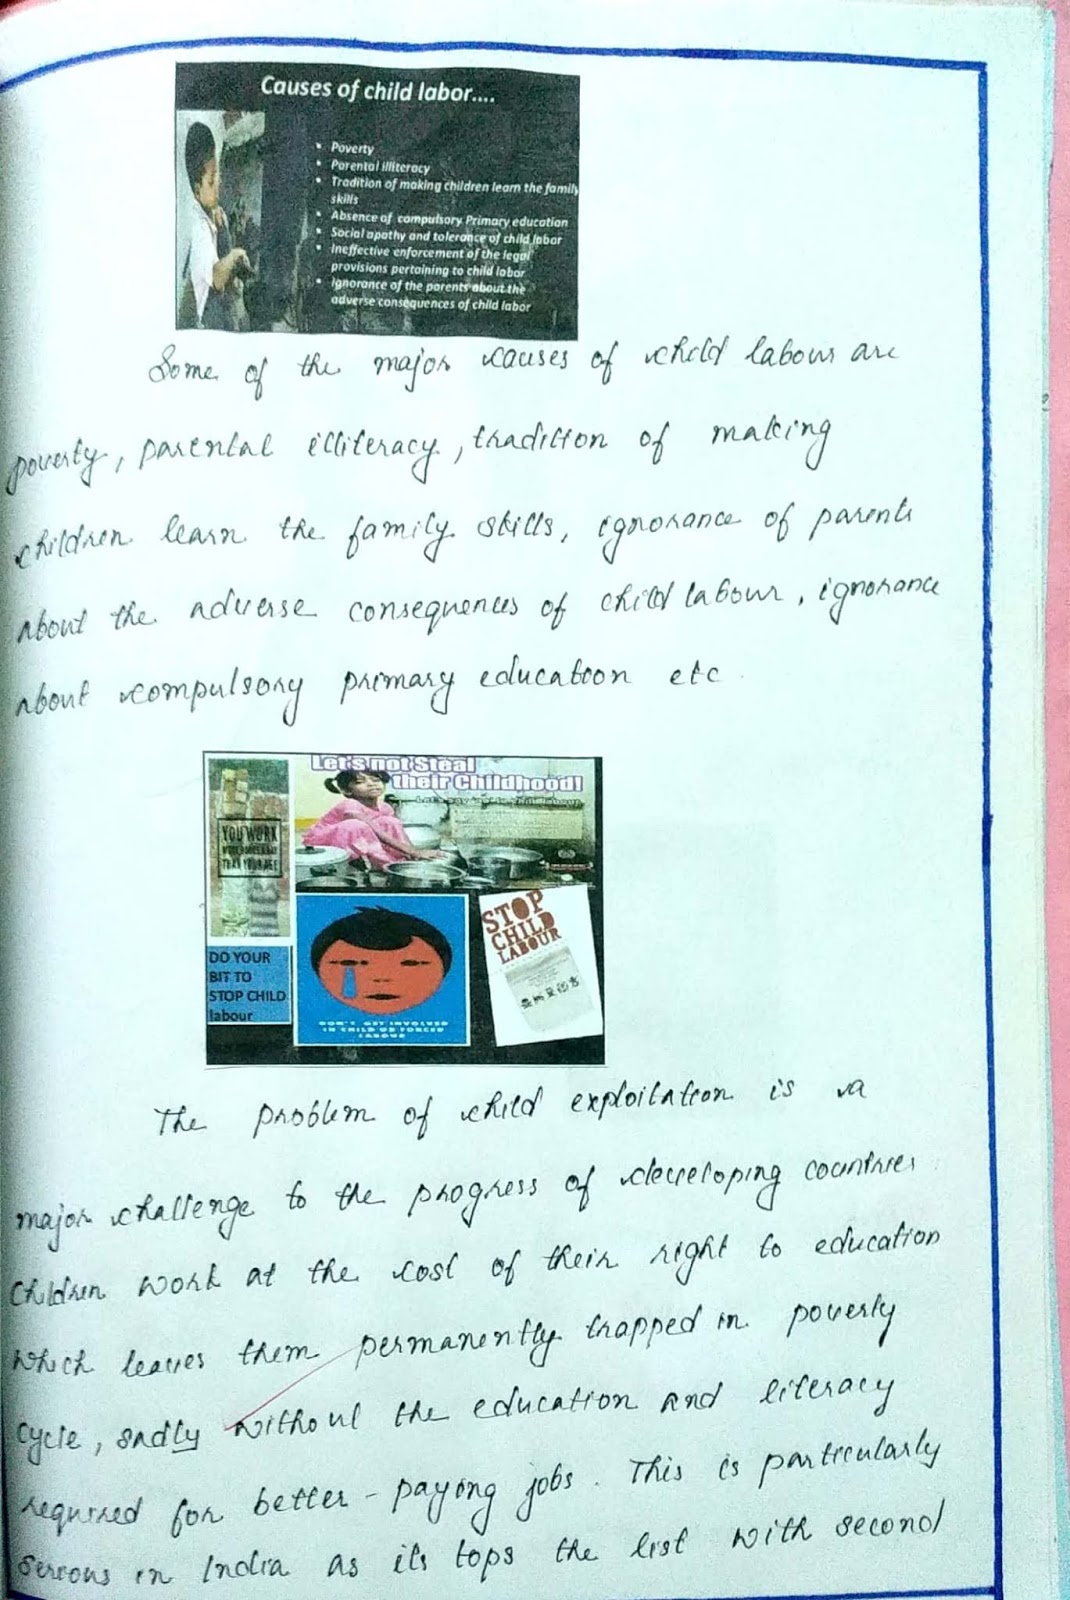 Causes of child labor....
• Poverty
• Parental illiteracy
• Tradition of making children learn the family
skills
• Absence of compulsory Primary education
• Social apathy and tolerance of child labor
• Ineffective enforcement of the legal
provisions pertaining to child labor
• Ignorance of the parents about the
adverse consequences of child labor
Some of the major causes of child labour are
poverty, parental illiteracy, tradition of making
children learn the family skills, ignorance of parents
about the adverse consequences of child labour, ignorance
about compulsory primary education etc.
Let's not Steal
their Childhood!
YOU WORK
THAN YOUR AGE
STOP
CHILD
LABOUR
DO YOUR
BIT TO
STOP CHILD
labour
DON'T GET INVOLVED
IN CHILD OR FORCED
LABOUR
The problem of child exploitation is a
major challenge to the progress of developing countries
Children work at the cost of their right to education
which leaves them permanently trapped in poverty
cycle, sadly without the education and literacy
required for better - paying jobs. This is particularly
serious in India as its tops the list with second